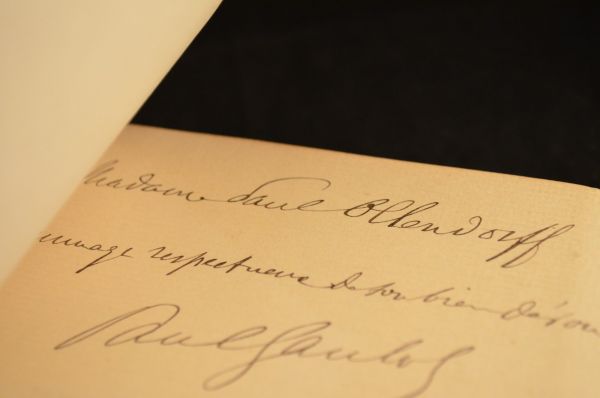 Madame Paul Ollendorff
mmage respectueux de son bien dévou
Paul Gaulot